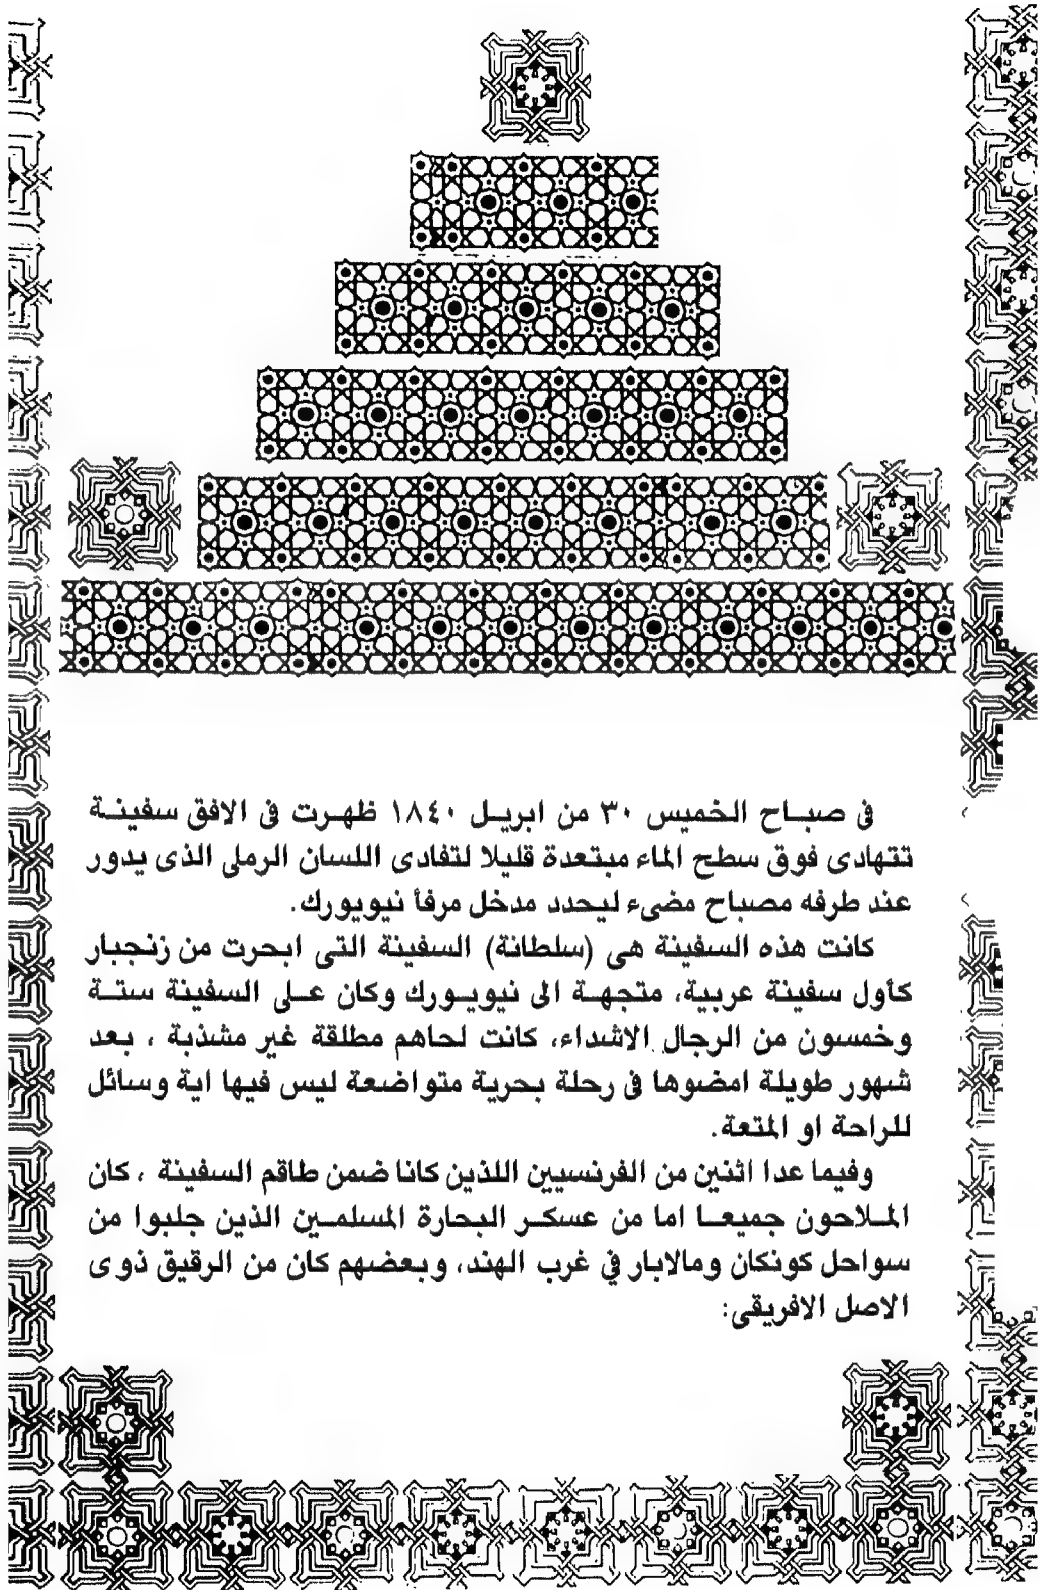 فى صبـاح الخميس ٣٠ من ابريـل ١٨٤٠ ظهـرت فى الافق سفينـة
تتهادى فوق سطح الماء مبتعدة قليلا لتفادى اللسان الرملى الذى يدور
عند طرفه مصباح مضىء ليحدد مدخل مرفأ نيويورك.
كانت هذه السفينة هى (سلطانة) السفينة التى ابحرت من زنجبار
كأول سفينة عربية، متجهـة الى نيويـورك وكان علـى السفينة ستـة
وخمسون من الرجال الاشداء، كانت لحاهم مطلقة غير مشذبة ، بعد
شهور طويلة امضوها فى رحلة بحرية متواضعة ليس فيها اية وسائل
للراحة او المتعة.
وفيما عدا اثنين من الفرنسيين اللذين كانا ضمن طاقم السفينة ، كان
المـلاحون جميعـا اما من عسكـر البحارة المسلمـين الذين جلبوا من
سواحل كونكان ومالابار في غرب الهند، وبعضهم كان من الرقيق ذوى
الاصل الافريقى: